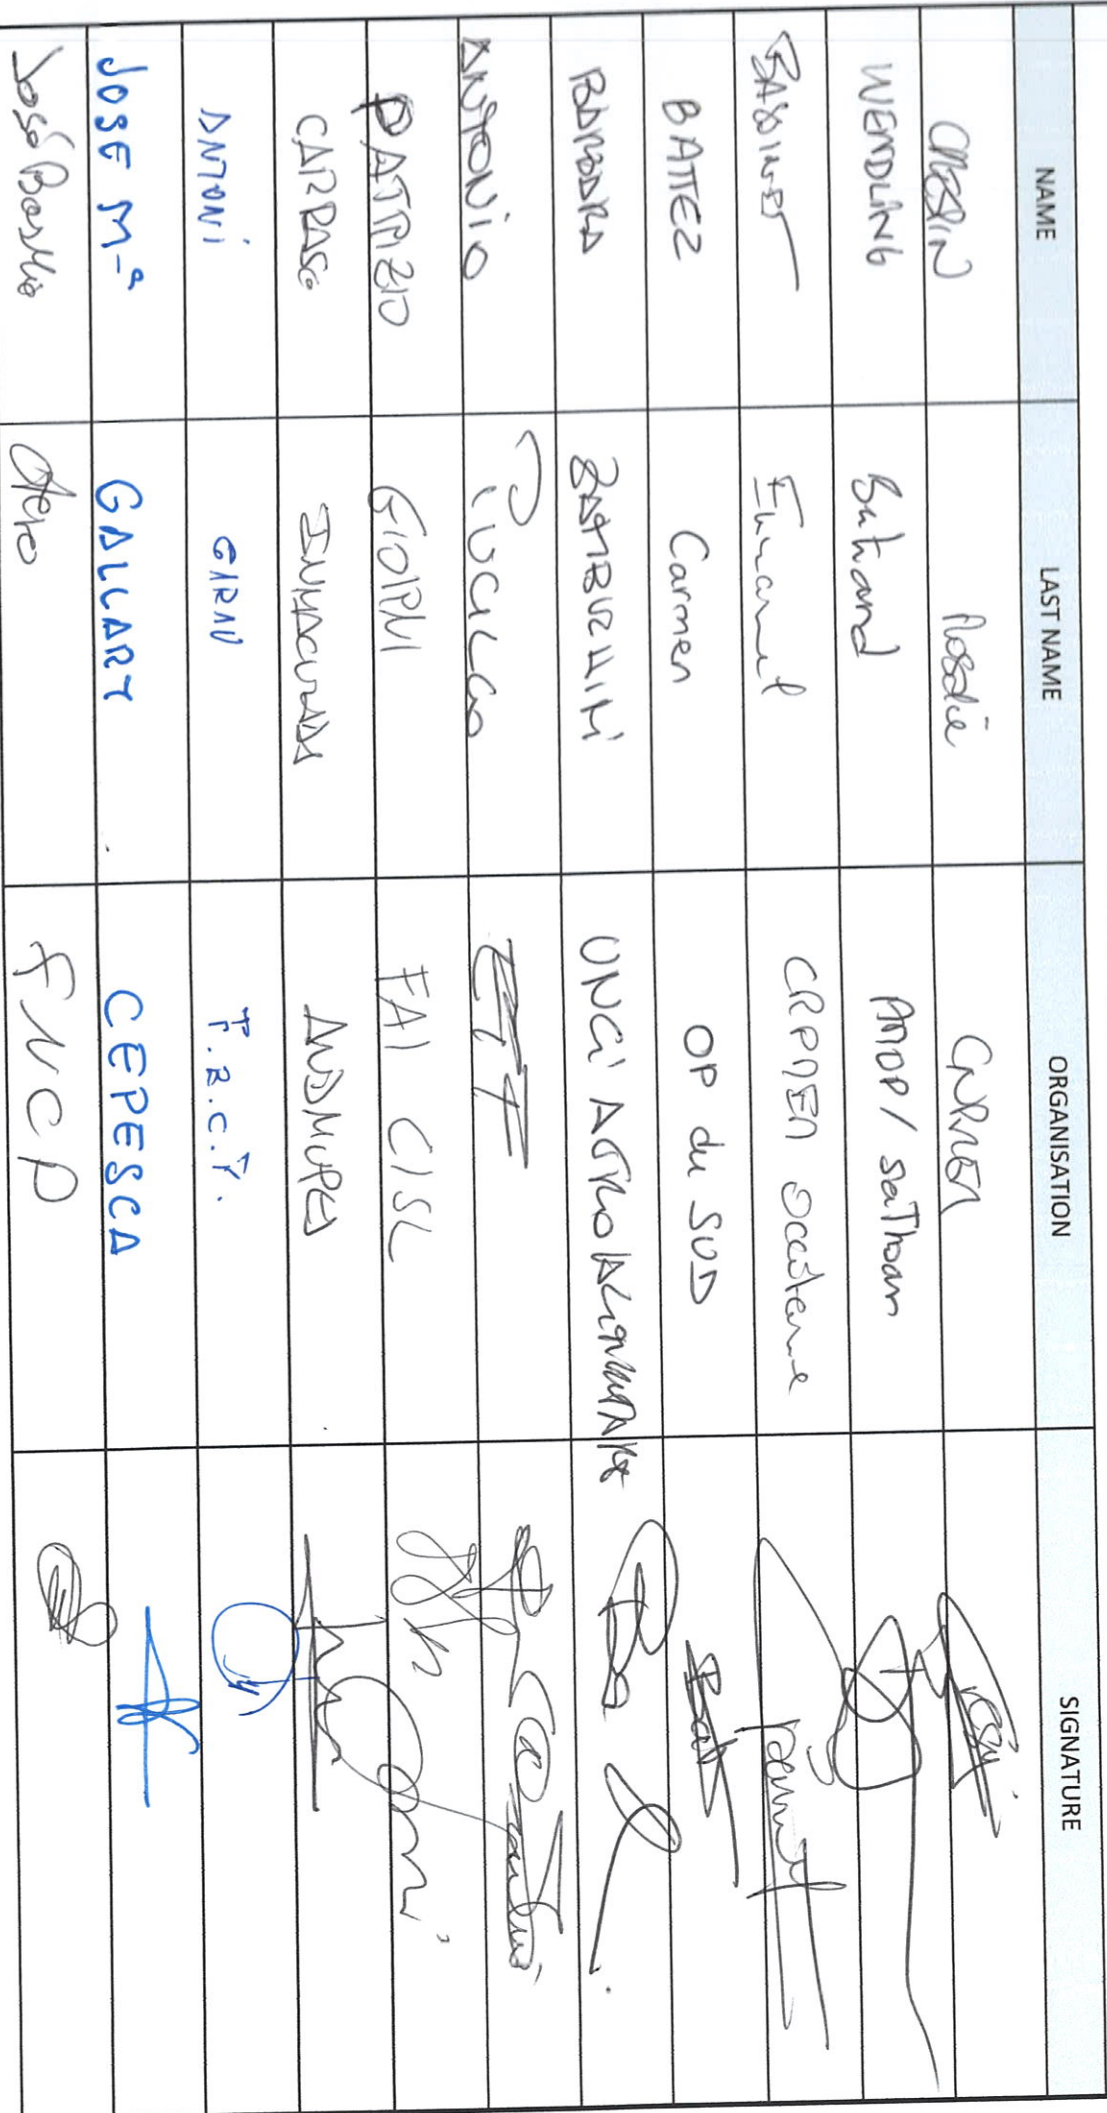 NAME LAST NAME ORGANISATION SIGNATURE
CRESPIN Rosalie CNPMEM
WENDLING Bertrand AMOP / SaThoan
Emmanuel CRPMEM Occitanie
BATTEZ Carmen OP du SUD
BARBARA ZAMBURLINI UNCI AGROALIMENTARE
ANTONIO PUCILLO ETF
PATRIZIO GIORNI FAI CISL
CARRASCO INMACULADA ANDMUPES
ANTONI GARAU F.B.C.P.
JOSE Mª GALLART CEPESCA
José Basilio Otero FNCP